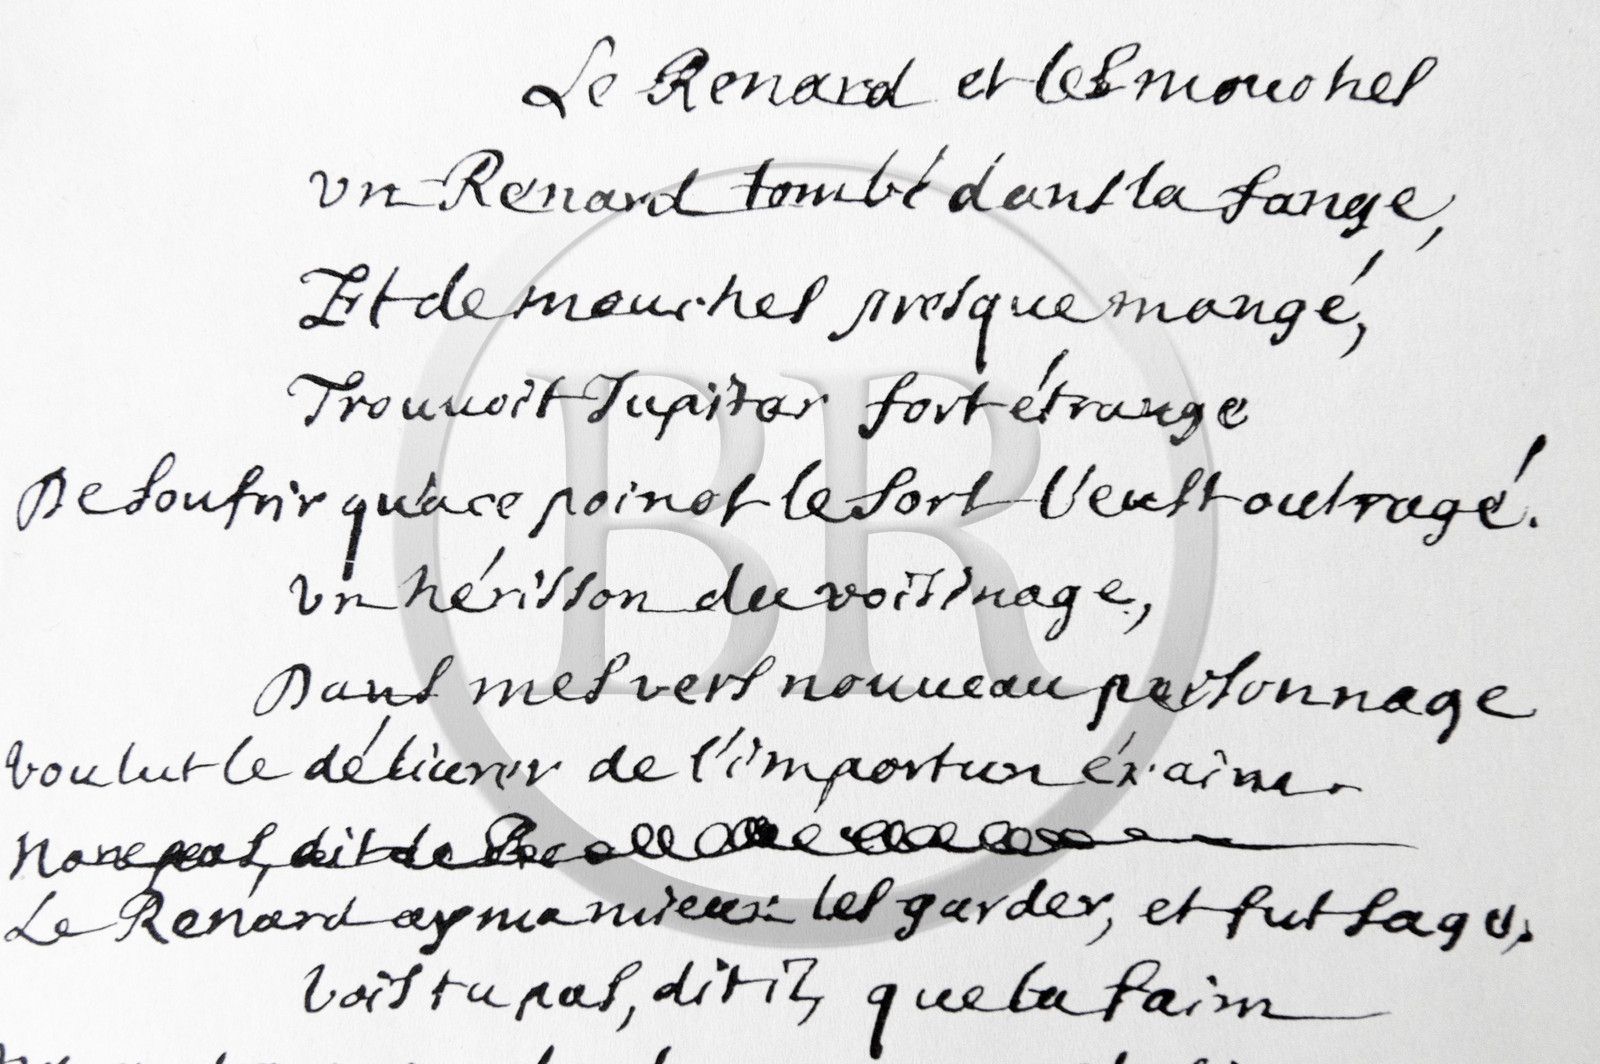 Le Renard et les mouches
Un Renard tombé dans la fange,
Et de mouches presque mangé,
Trouuoit Jupiter fort étrange
De soufrir qu'a ce poinct le sort l'eust outragé.
Un hérisson du voisinage,
Dans mes vers nouueau personnage
Voulut le déliurer de l'importun éxaim.
Non pas, dit le Re
Le Renard ayma mieux les garder, et fut sage.
Vois tu pas, dit il, que la faim
BR